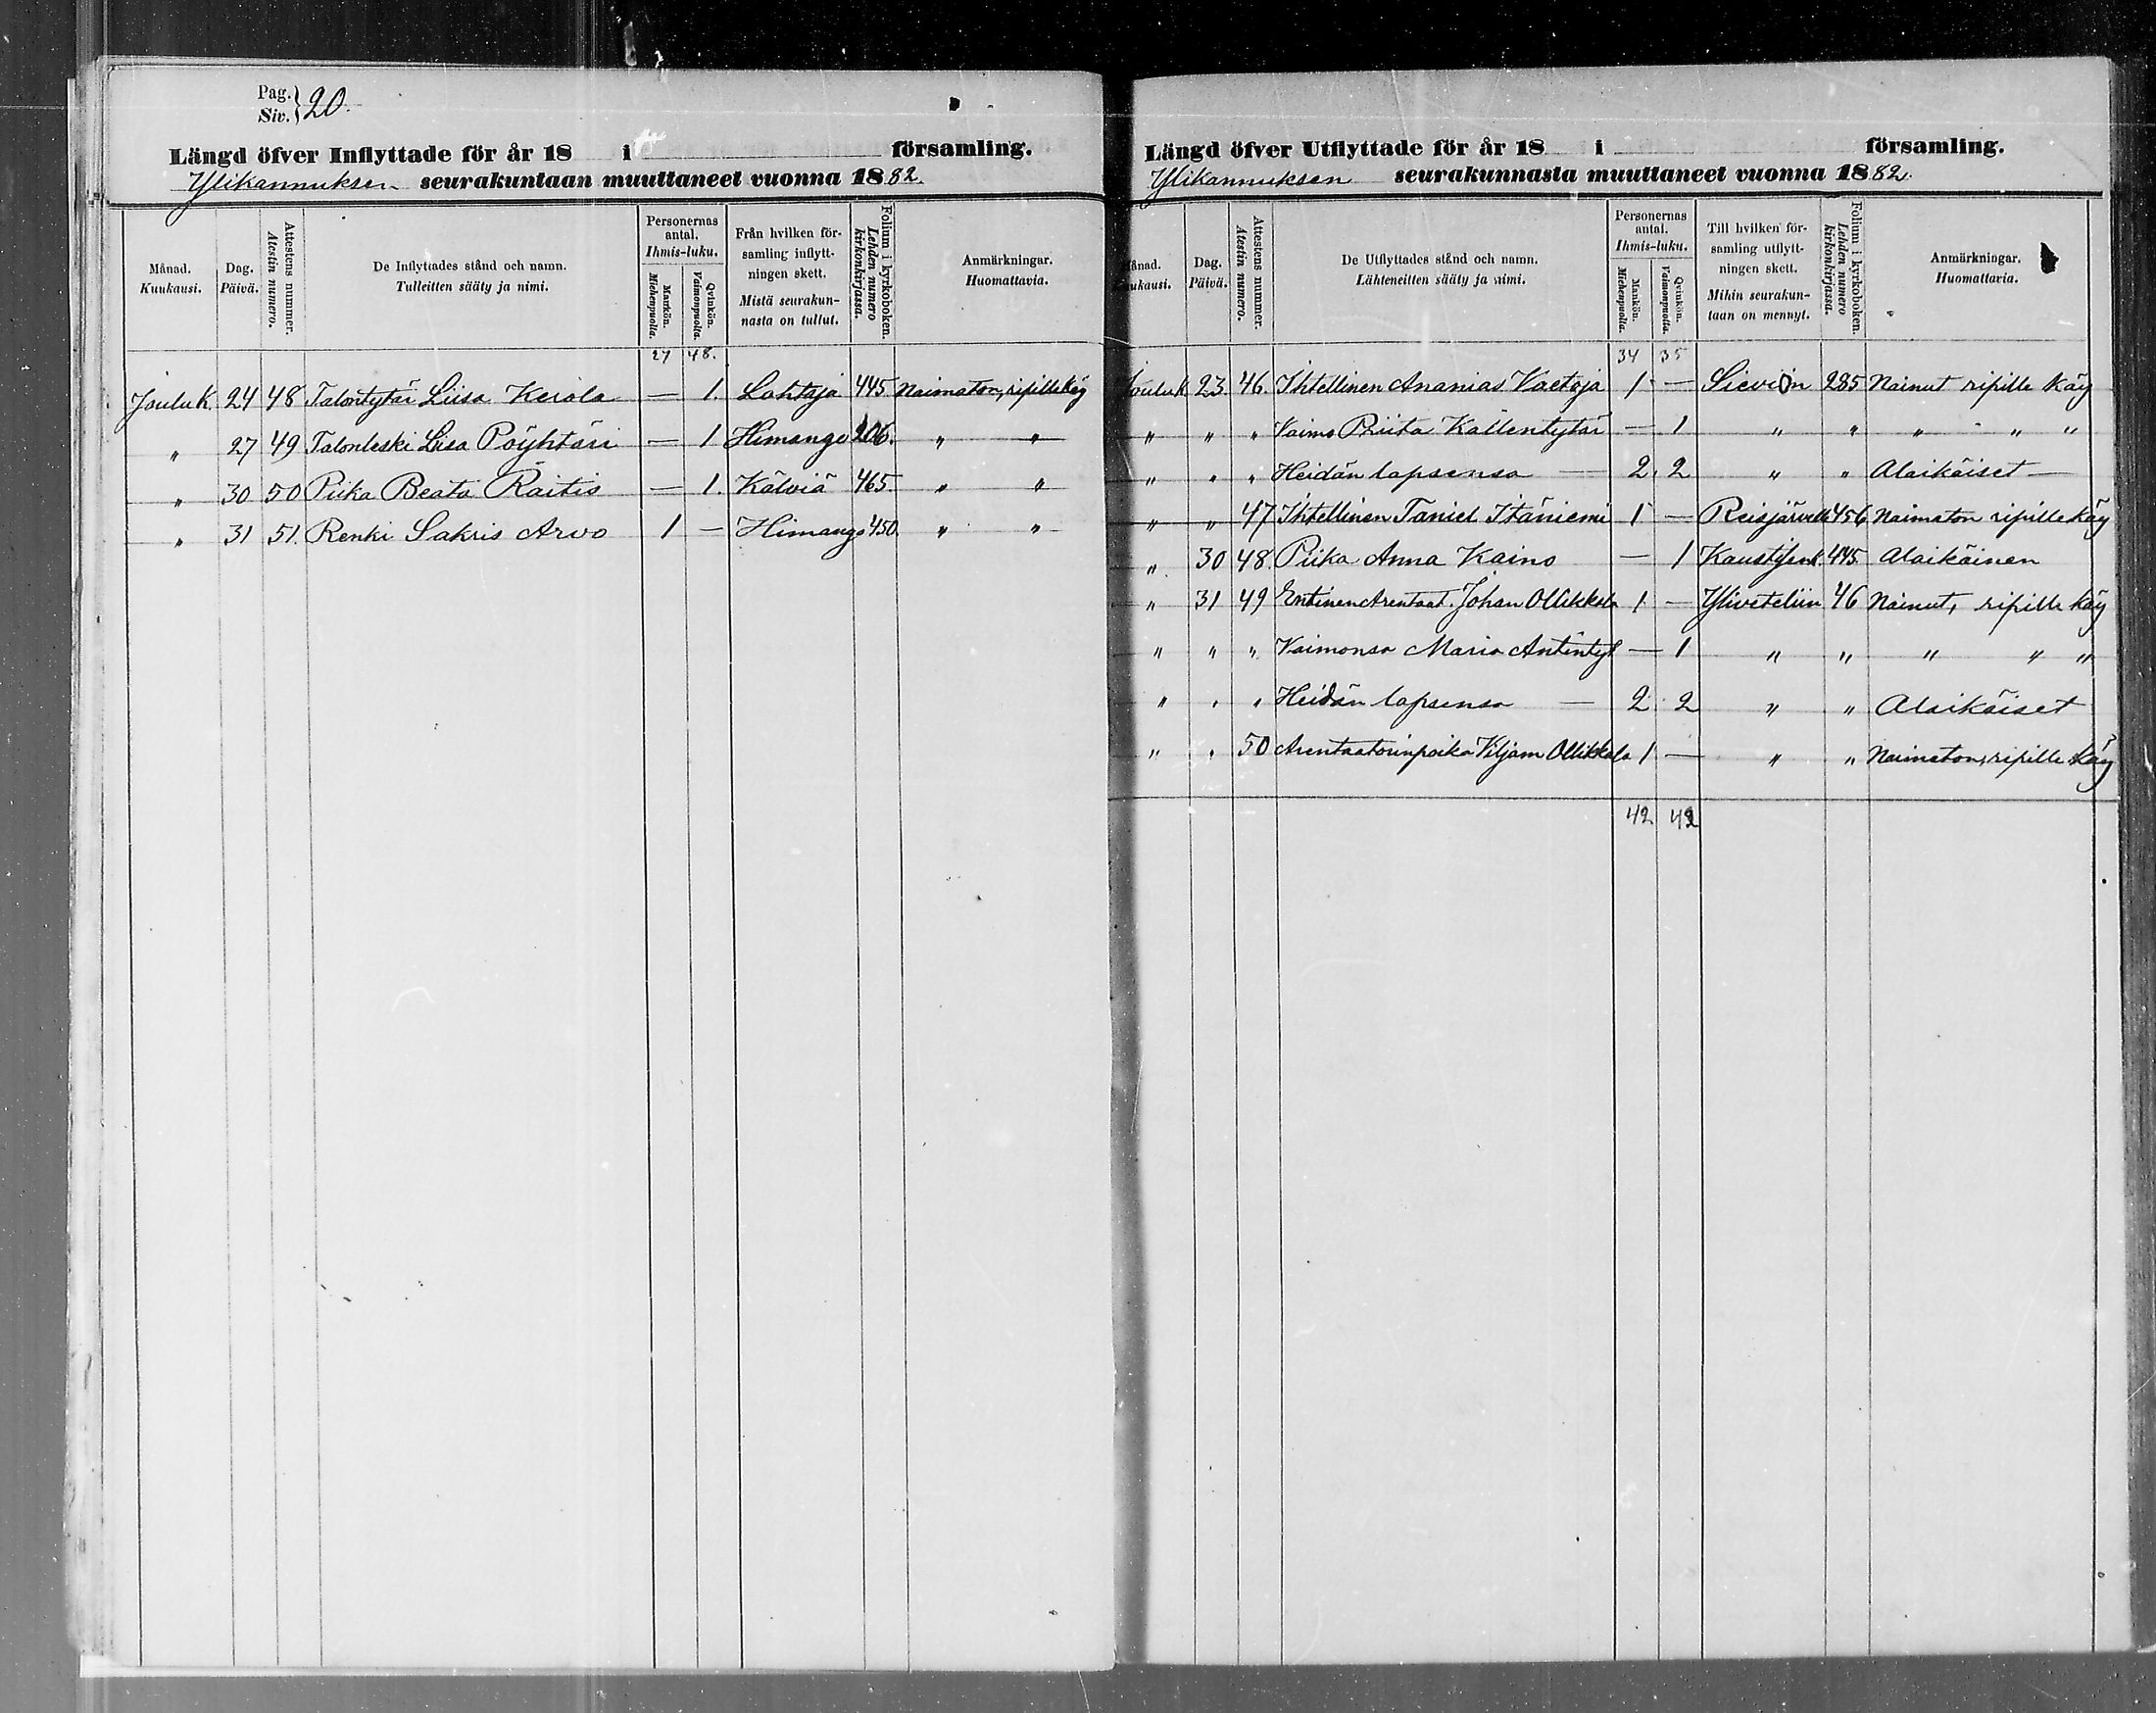 Pag. Siv. } 20.
Längd öfver Inflyttade för år 18 i församling.
Ylikannuksen seurakuntaan muuttaneet vuonna 1882.
Månad. Kuukausi. | Dag. Päivä. | Attestens nummer. Atestin numero. | De Inflyttades stånd och namn. Tulleitten sääty ja nimi. | Personernas antal. Ihmis-luku. Mankön. Miehenpuolta. Qvinkön. Vaimonpuolta. | Från hvilken församling inflyttningen skett. Mistä seurakunnasta on tullut. | Folium i kyrkoboken. Lehden numero kirkonkirjassa. | Anmärkningar. Huomattavia.
27 48.
Jouluk. 24 48 Talontytär Liisa Kerola — 1. Lohtaja 445 Naimaton, ripille käy
" 27 49 Talonleski Lisa Pöyhtäri — 1 Himango 206. " "
" 30 50 Piika Beata Raitis — 1. Kälviä 465. " "
" 31 51. Renki Sakris Arvo 1 — Himango 450. " "
Längd öfver Utflyttade för år 18 i församling.
Ylikannuksen seurakunnasta muuttaneet vuonna 1882.
Månad. Kuukausi. | Dag. Päivä. | Attestens nummer. Atestin numero. | De Utflyttades stånd och namn. Lähteneitten sääty ja nimi. | Personernas antal. Ihmis-luku. Mankön. Miehenpuolta. Qvinkön. Vaimonpuolta. | Till hvilken församling utflyttningen skett. Mihin seurakuntaan on mennyt. | Folium i kyrkoboken. Lehden numero kirkonkirjassa. | Anmärkningar. Huomattavia.
34 35
Jouluk 23. 46. Ihtellinen Ananias Vaetoja 1 — Sieviin 285 Nainut ripille käy
" " " Vaimo Priita Kallentytär — 1 " " " " "
" " " Heidän lapsensa — 2. 2 " " Alaikäiset —
" " 47 Ihtellinen Taniel Itäniemi 1 — Reisjärvelle 456 Naimaton ripille käy
" 30 48 Piika Anna Kaino — 1 Kaustisen k. 445. Alaikäinen
" 31 49 Entinen Arentaat. Johan Ollikkala 1 — Yliveteliin 46 Nainut, ripille käy
" " " Vaimonsa Maria Antintyt — 1 " " " " "
" " " Heidän lapsensa — 2 2 " " Alaikäiset
" " 50 Arentaatorinpoika Viljam Ollikkala 1 — " " Naimaton, ripille käy
42 42